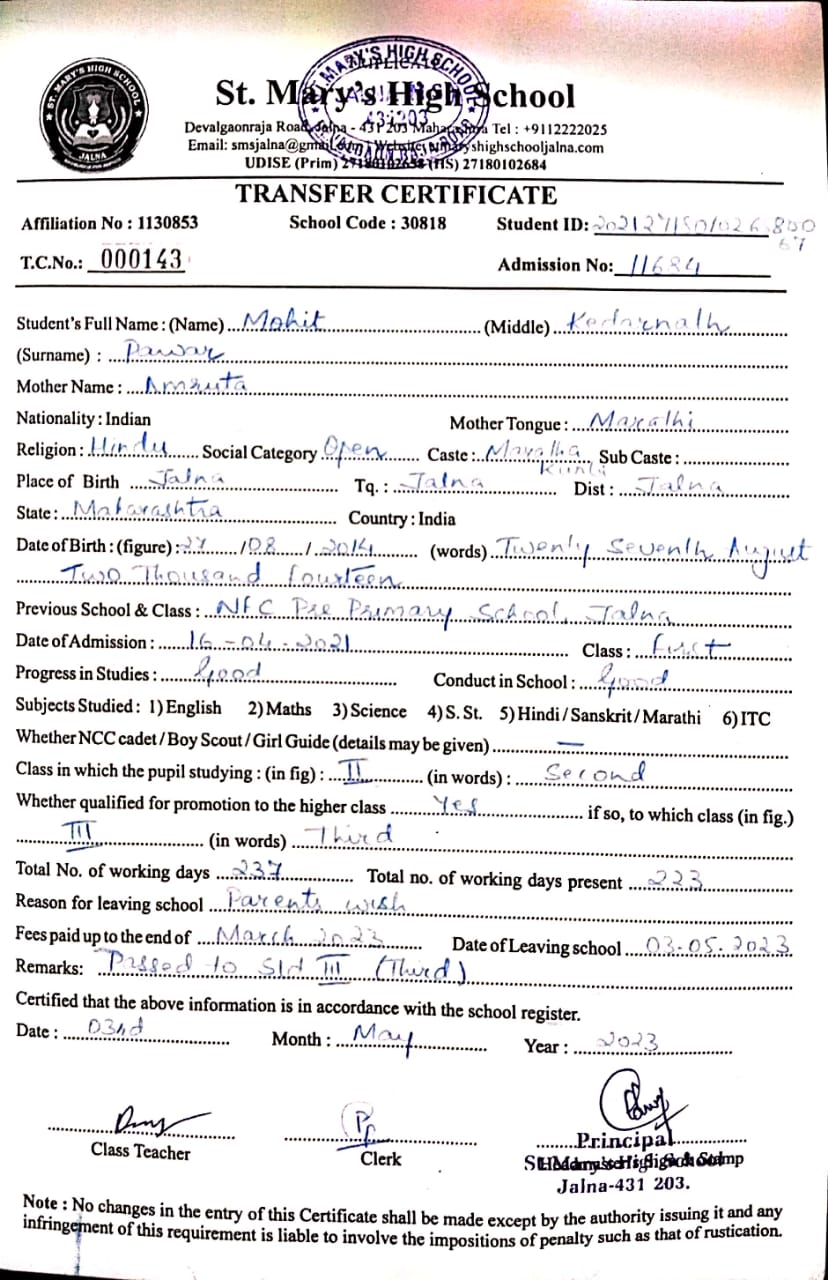 ST. MARY'S HIGH SCHOOL
JALNA
ST. MARY'S HIGH SCHOOL
431203
St. Mary's High School
Devalgaonraja Road, Jalna - 431 203 Maharashtra Tel : +9112222025
Email: smsjalna@gmail.com
UDISE (Prim) (HS) 27180102684
TRANSFER CERTIFICATE
Affiliation No : 1130853 School Code : 30818 Student ID:
T.C.No.: 000143 Admission No: 11684
Student's Full Name : (Name) Mohit (Middle) Kedarnath
(Surname) : Pawar
Mother Name : Amruta
Nationality : Indian Mother Tongue : Marathi
Religion : Hindu Social Category Open Caste : Maratha Kunbi Sub Caste :
Place of Birth Jalna Tq. : Jalna Dist : Jalna
State : Maharashtra Country : India
Date of Birth : (figure) : 27 / 08 / 2014 (words) Twenty Seventh August
Two Thousand Fourteen
Previous School & Class : NFC Pre Primary School, Jalna
Date of Admission : 16-04-2021 Class : First
Progress in Studies : Good Conduct in School : Good
Subjects Studied : 1) English 2) Maths 3) Science 4) S. St. 5) Hindi / Sanskrit / Marathi 6) ITC
Whether NCC cadet / Boy Scout / Girl Guide (details may be given) —
Class in which the pupil studying : (in fig) : II (in words) : Second
Whether qualified for promotion to the higher class Yes if so, to which class (in fig.)
III (in words) Third
Total No. of working days 237 Total no. of working days present 223
Reason for leaving school Parents wish
Fees paid up to the end of March 2023 Date of Leaving school 03-05-2023
Remarks: Passed to Std III (Third)
Certified that the above information is in accordance with the school register.
Date : 03rd Month : May Year : 2023
Class Teacher Clerk Principal
St. Mary's High School
Jalna-431 203.
Note : No changes in the entry of this Certificate shall be made except by the authority issuing it and any
infringement of this requirement is liable to involve the impositions of penalty such as that of rustication.